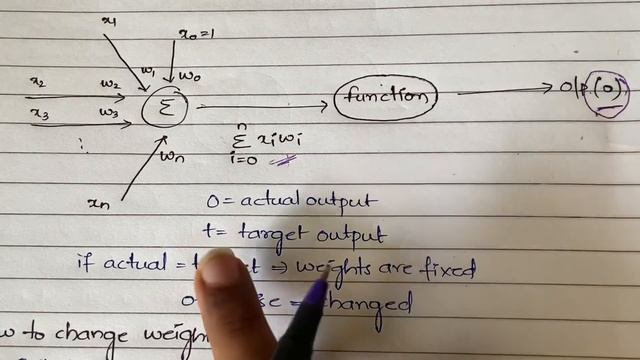 x1
x0=1
w1
w0
x2 w2
x3 w3
Σ
function
o/p (o)
wn
n
Σ xiwi
i=0
xn
o= actual output
t= target output
if actual = ⇒ weights are fixed
changed
to change